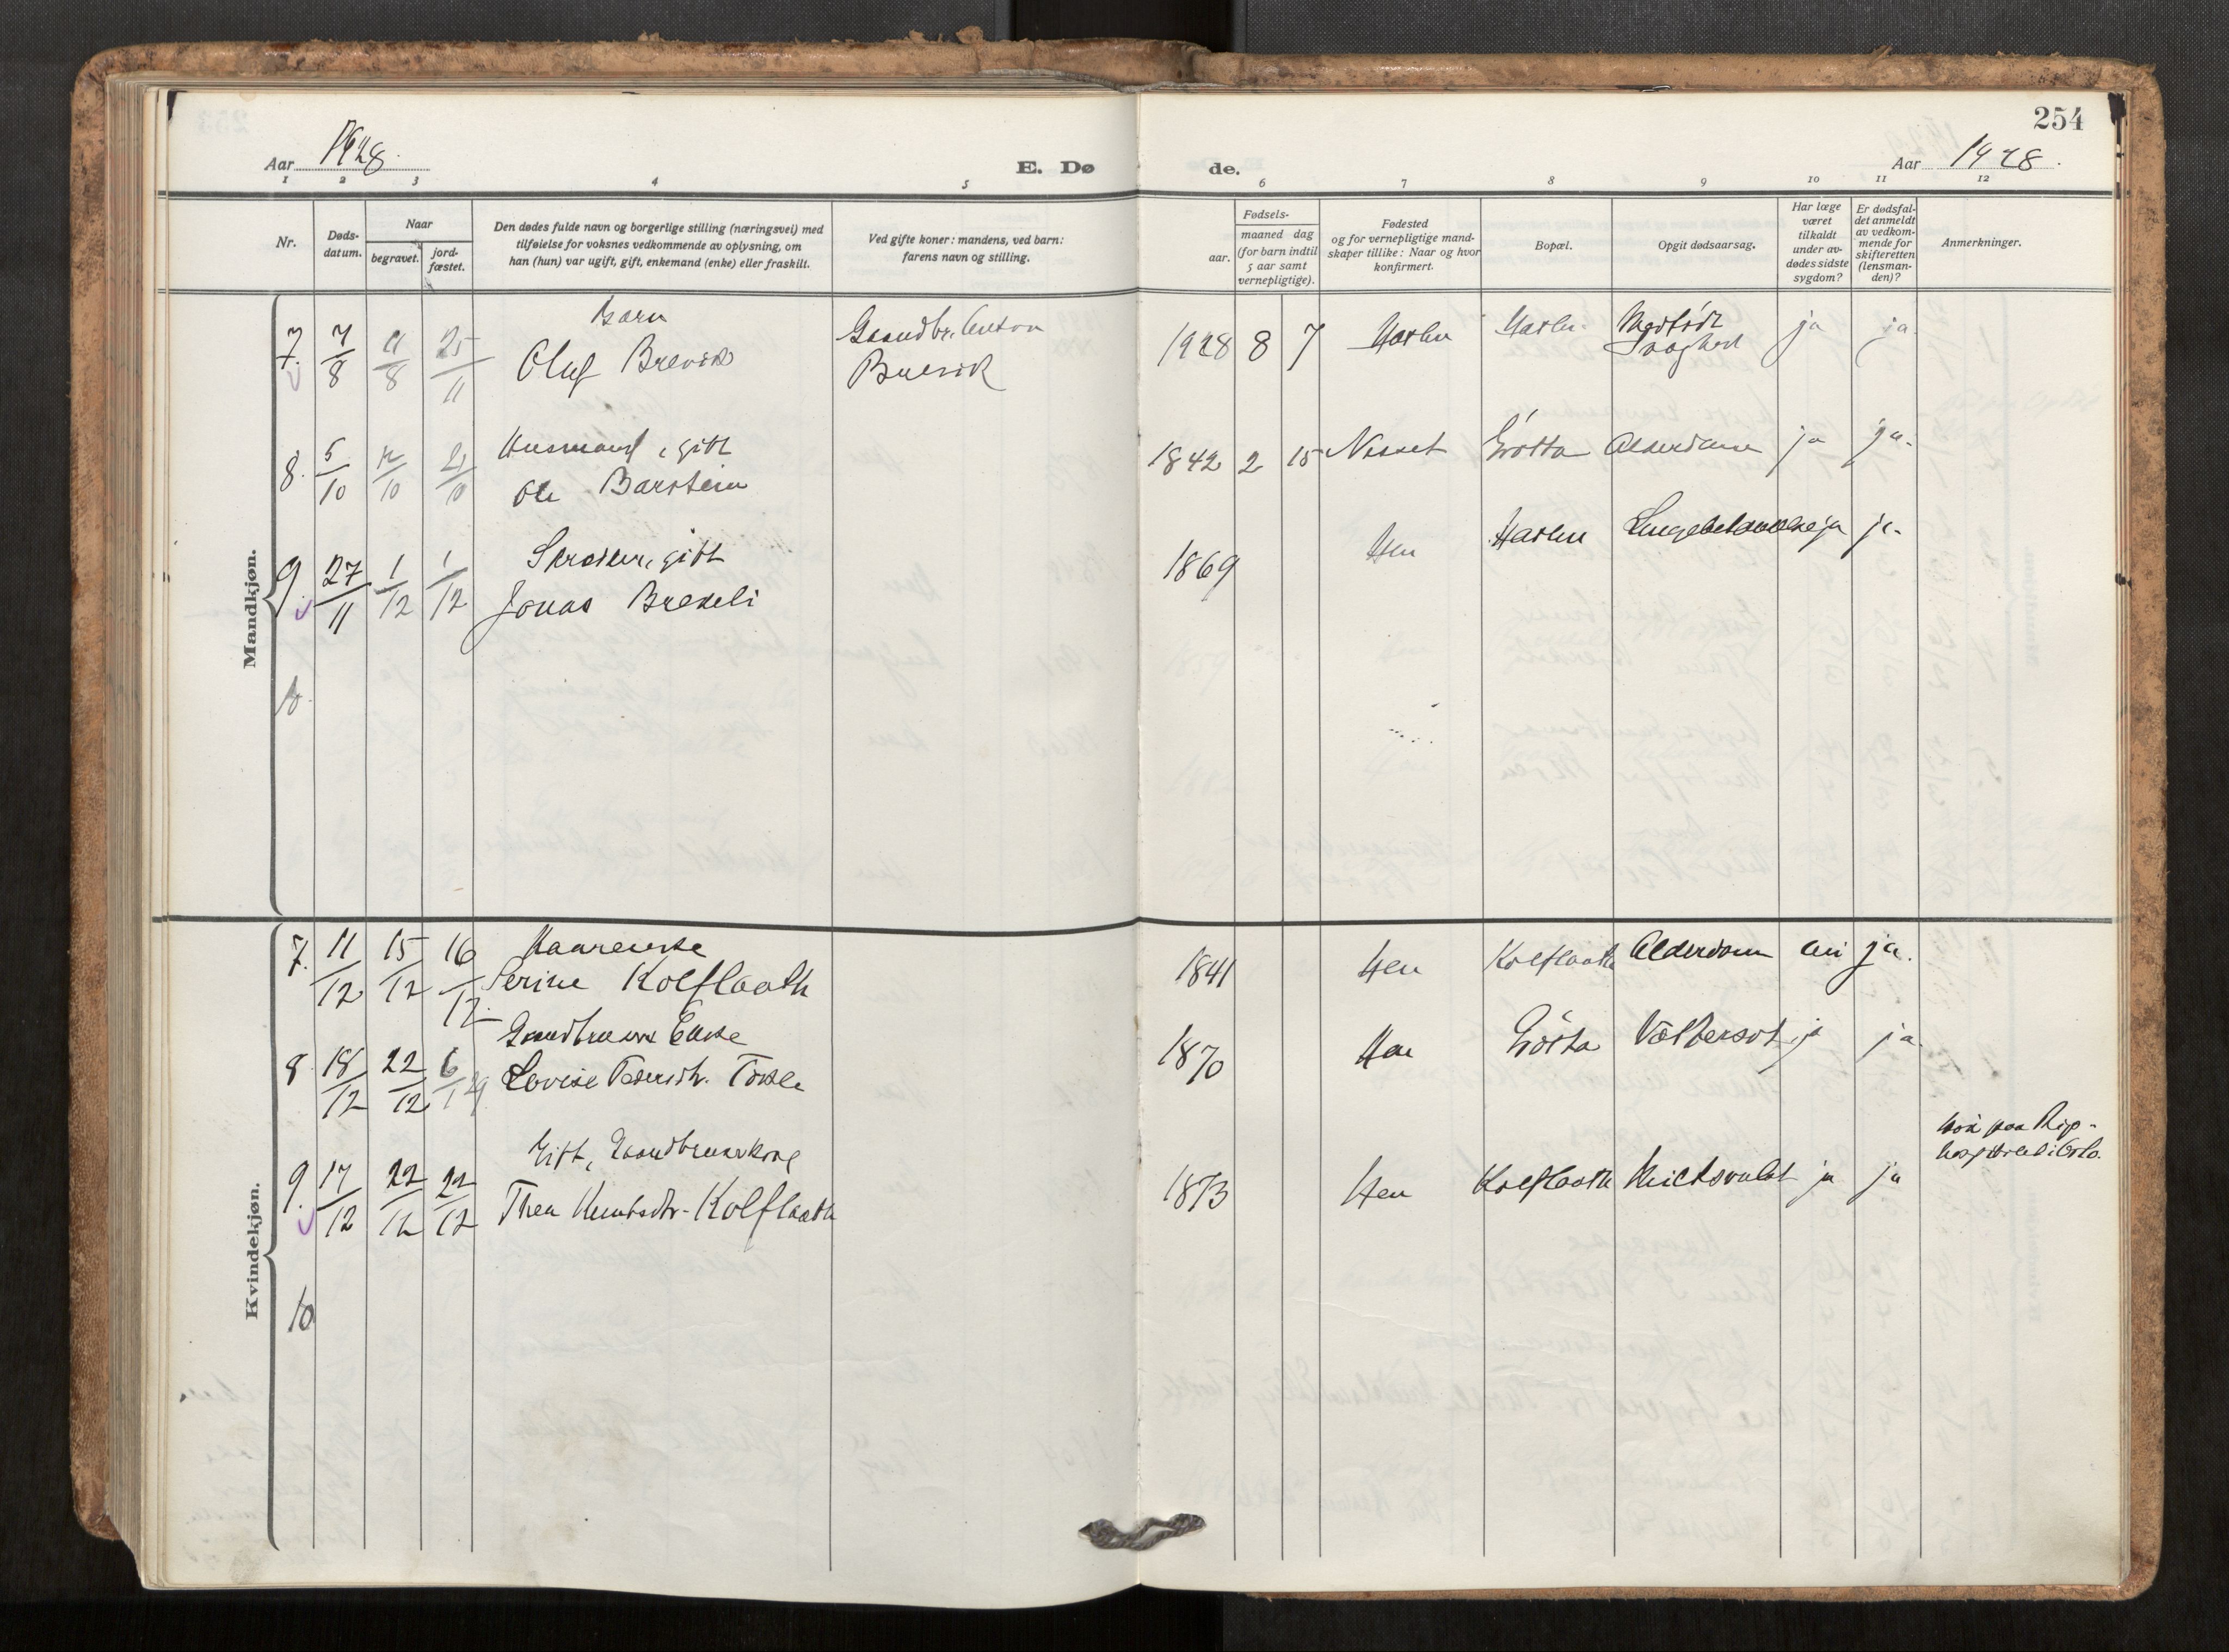 254
Aar 1928.
E. Dø
de.
Aar 1928.
1 2 3 4 5 6 7 8 9 10 11 12
Nr.
Døds-
datum.
Naar
begravet.
jord-
fæstet.
Den dødes fulde navn og borgerlige stilling (næringsvei) med
tilføielse for voksnes vedkommende av oplysning, om
han (hun) var ugift, gift, enkemand (enke) eller fraskilt.
Ved gifte koner: mandens, ved barn:
farens navn og stilling.
Fødsels-
aar.
maaned dag
(for barn indtil
5 aar samt
vernepligtige).
Fødested
og for vernepligtige mand-
skaper tillike: Naar og hvor
konfirmert.
Bopæl.
Opgit dødsaarsag.
Har læge
været
tilkaldt
under av-
dødes sidste
sygdom?
Er dødsfal-
det anmeldt
av vedkom-
mende for
skifteretten
(lensman-
den)?
Anmerkninger.
Mandkjøn.
Barn
7. 7/8 11/8 25/11 Oluf Brevik
Gaardbr. Anton
Brevik
1928 8 7
Medfødt
Svaghet
ja ja
Husmand, gift
8. 5/10 12/10 21/10 Ole Barstein
1842 2 15 Nesset Grøtta Alderdom ja ja.
Skrædder, gift
9. 27/11 1/12 1/12 Jonas Brekeli
1869 Hen ja ja.
10.
Kvindekjøn.
Kaarenke
7. 11/12 15/12 16/12. Serine Kolflaath
1841 Hen Kolflaath Alderdom nei ja.
Gaardbruker Enke
8 18/12 22/12 6/1 29 Lovise Pedersdtr. Tokle
1870 Hen Grøtta Vattersot ja ja
Gift, Gaardbrukerkone
9. 17/12 22/12 22/12 Thea Knutsdtr. Kolflaath
1873 Hen Kolflaath ja ja
død paa Rigs-
hospitalet i Oslo.
10